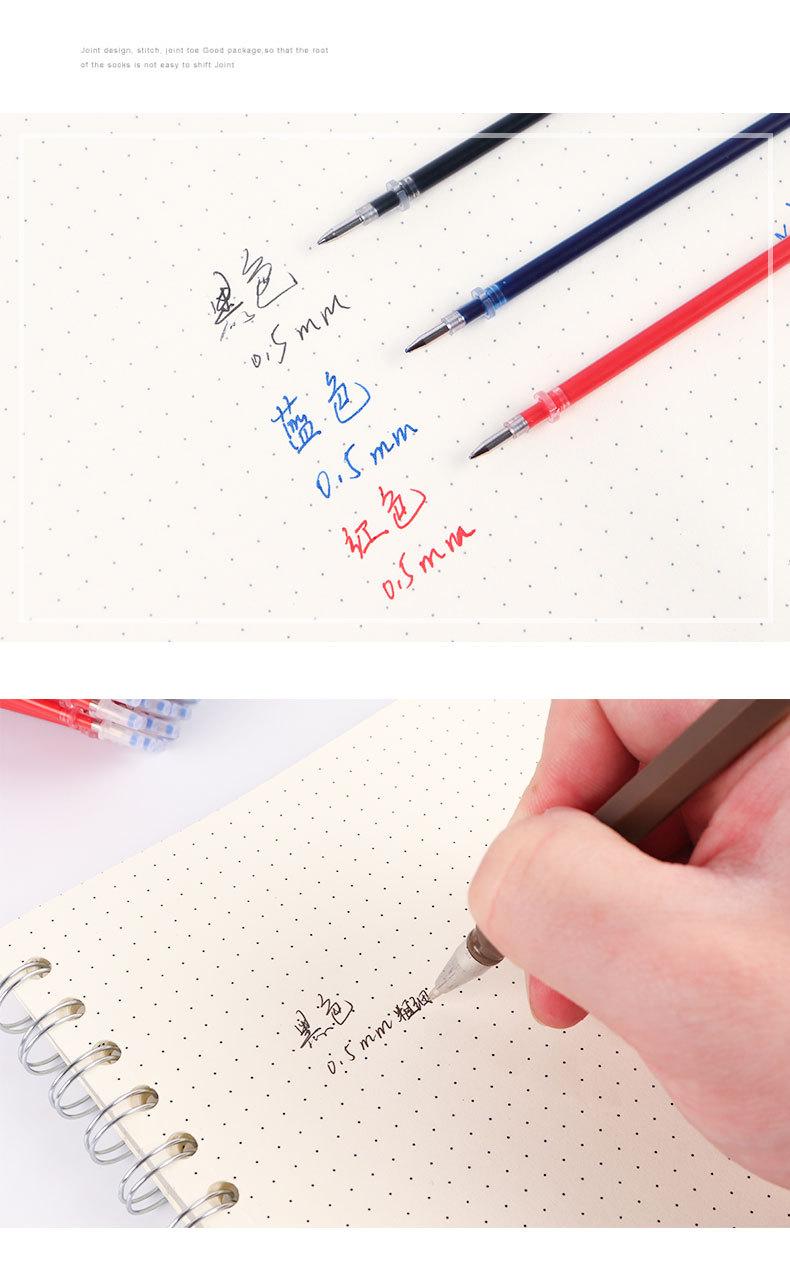 Joint design, stitch, joint toe Good package,so that the root
of the socks is not easy to shift Joint
黑色
0.5mm
蓝色
0.5mm
红色
0.5mm
黑色
0.5mm 粗细